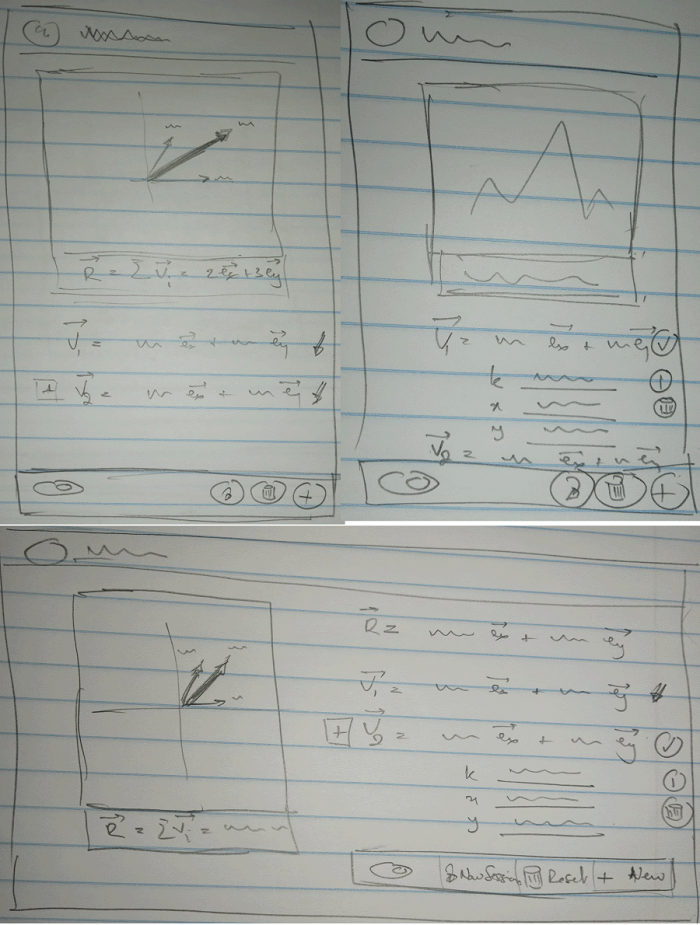 R = Σ Vi = 2ex + 3ey
V1 = ex + ey
+ V2 = ex + ey
+
V1 = ex + ey
k
x
y
V2 = ex + ey
+
R = ex + ey
V1 = ex + ey
+ V2 = ex + ey
k
x
y
R = Σ Vi =
New Session Reset + New